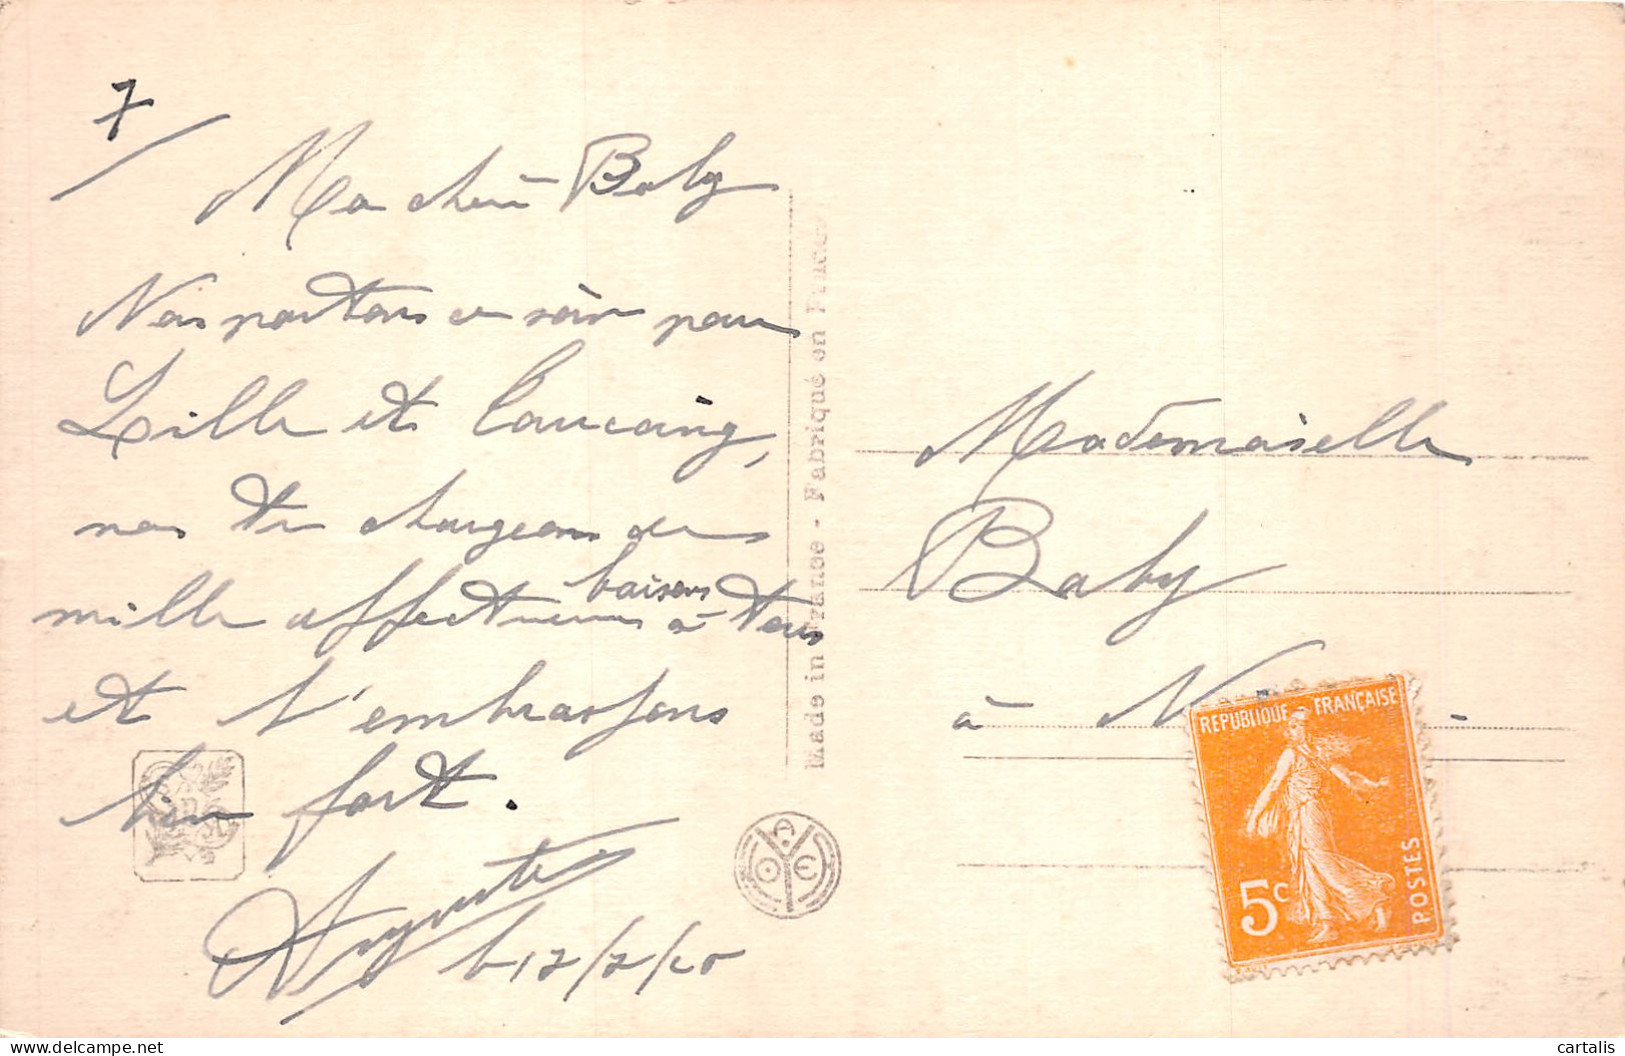 7
Ma chérie Baby
Nous partons ce soir pour
Lille et Tourcoing,
nous te chargeons de
mille affectueux baisers à tous
et t'embrassons
bien fort.
17/7/20
Made in France - Fabriqué en France
Mademoiselle
Baby
à
REPUBLIQUE FRANÇAISE
5c
POSTES
delcampe.net
cartalis